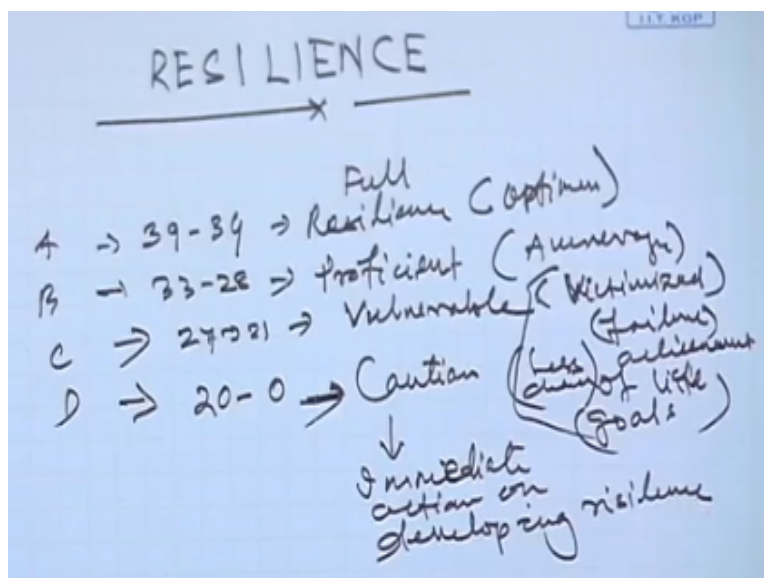 I.I.T. KGP
RESILIENCE
Full
A → 39-34 → Resilience (optimum)
B → 33-28 → Proficient (Average)
C → 27→21 → Vulnerable (Victimized)
(failure)
D → 20-0 → Caution (Less achievement
of life
goals)
↓
Immediate
action on
developing risilence